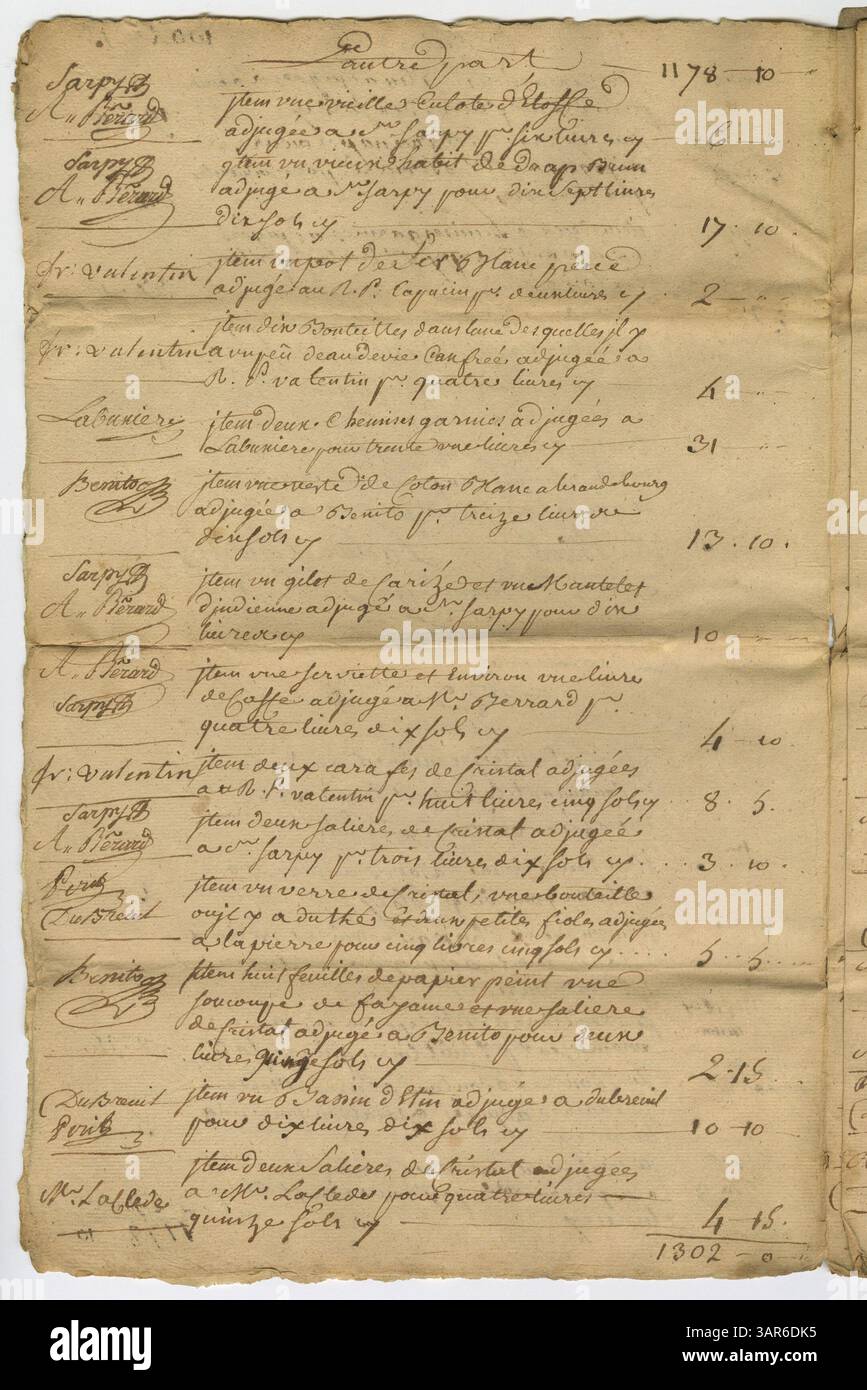 De L'autre part 1178 - 10 -
Sarpy
A. Bérard
jtem une vieille Culote d'Etoffe
adjugée a Sr. Sarpy pr. six livres cy 6 - "
Sarpy
A. Bérard
jtem un vieux habit de drap Brun
adjugé a Sr. Sarpy pour dix sept livres
dix sols cy 17 . 10 .
fr: valentin
jtem un pot de fer Blanc percé
adjugé au R. P. Capucin pr. deux livres cy 2 - "
fr: valentin
jtem dix Bouteilles dans l'une desquelles jl y
a un peu deaudevie Canfrée adjugée a
R. P. valentin pr. quatre livres cy 4 - "
Labuxiere
jtem deux Chemises garnies adjugées a
Labuxiere pour trente une livres cy 31 - "
Benito
jtem une veste de Coton Blanc a brandebourg
adjugée a Benito pr. treize livres
dix sols cy 13 . 10 .
Sarpy
A. Bérard
jtem un gilet de Carizé et un Mantelet
d'jndienne adjugé a Sr. Sarpy pour dix
livres cy 10 - "
A. Bérard
Sarpy
jtem une serviette et Environ une livre
de Caffé adjugé a Mr. Berrard pr.
quatre livres dix sols cy 4 - 10
fr: valentin
jtem deux carafes de Cristal adjugées
au R. P. valentin pr. huit livres cinq sols cy 8 . 5 .
Sarpy
A. Bérard
jtem deux salieres de Cristal adjugée
a Sr. Sarpy pr. trois livres dix sols cy 3 . 10 .
DuBreuil
jtem un verre de Cristal, une bouteille
ou jl y a du thé et deux petites fioles adjugées
a lapierre pour cinq livres cinq sols cy 5 . 5 .
Benito
jtem huit feuilles de papier peint une
soucoupe de fayance et une saliere
de Cristal adjugé a Benito pour deux
livres quinze sols cy 2 - 15
DuBreuil
jtem un Bassin d'Etin adjugé a dubreuil
pour dix livres dix sols cy 10 - 10 -
Mr. Laclede
jtem deux Salieres de Cristal adjugées
a Mr. Laclede pour quatre livres
quinze sols cy 4 - 15 .
1302 - 0 -
alamy
Image ID: 3AR6DK5
www.alamy.com